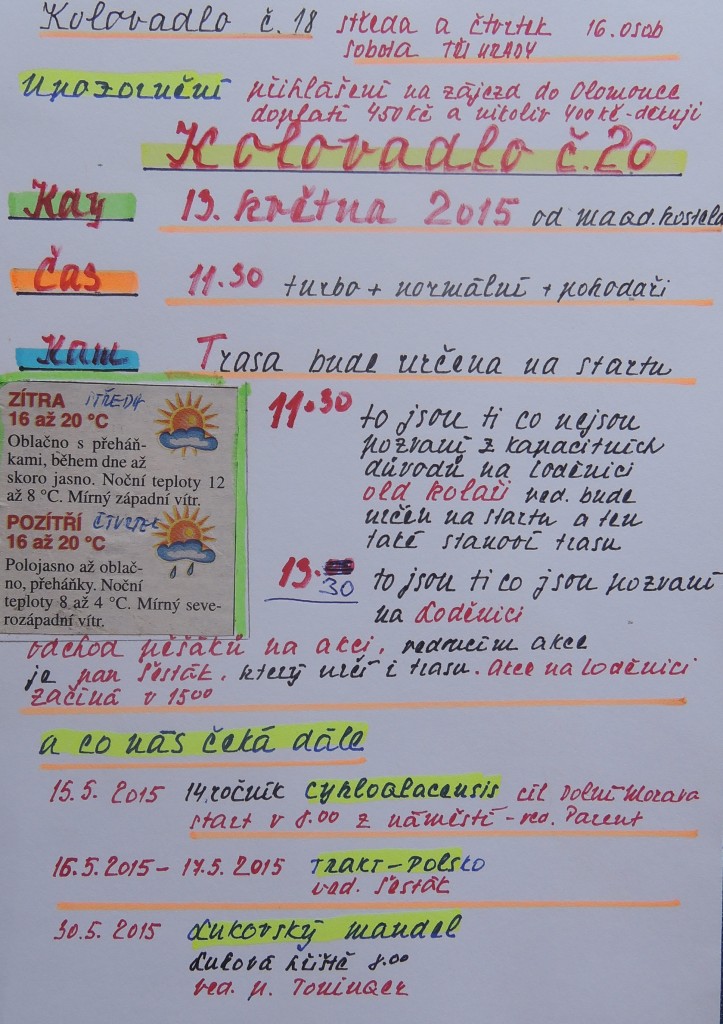 Kolovadlo č. 18 středa a čtvrtek 16. osob
sobota TŘI HRADY
Upozornění přihlášení na zájezd do Olomouce
doplatí 450 Kč a nikoliv 400 Kč - děkuji
Kolovadlo č. 20
Kdy 13. května 2015 od maad. kostela
Čas 11.30 turbo + normální + pohodáři
Kam Trasa bude určena na startu
ZÍTRA STŘEDA
16 až 20 °C
Oblačno s přeháň-
kami, během dne až
skoro jasno. Noční teploty 12
až 8 °C. Mírný západní vítr.
POZÍTŘÍ ČTVRTEK
16 až 20 °C
Polojasno až oblač-
no, přeháňky. Noční
teploty 8 až 4 °C. Mírný seve-
rozápadní vítr.
11.30 to jsou ti co nejsou
pozvaní z kapacitních
důvodů na loděnici
old kolaři ved. bude
určen na startu a ten
také stanoví trasu
13.30 to jsou ti co jsou pozvaní
na Loděnici
odchod pěšáků na akci, vedoucím akce
je pan Šesták, který určí i trasu. Akce na loděnici
začíná v 15 00
a co nás čeká dále
15.5. 2015 14. ročník cykloalacensis cíl Dolní Morava
start v 8.00 z náměstí - ved. Parent
16.5.2015 - 17.5. 2015 TRAKT - Polsko
ved. Šesták
30.5. 2015 Lukovský mandel
Luková hřiště 8.00
ved. p.